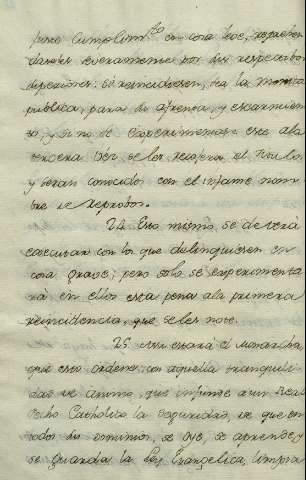 puro cumplim.to en cosa leve, reprehen
danse severamente por sus respectivos
superiores: si reincidiesen, sea la
publica, para su afrenta, y escarmien
to, y si no se experimentase este ala
tercera vez, se les recojera el Titulo,
y seran conocidos con el infame nom
bre de reprobos.
24. Esto mismo se devera
executar con los que delinquiesen en
cosa grave; pero solo se experimenta
rá en ellos esta pena ala primera
reincidencia, que se les note.
25. Asi estará el Monarcha,
que esto ordenes, con aquella tranquili
dad de animo, que infunde a un Real
Pecho Catholico la seguridad, de que en
todos sus dominios, se oye, se aprende, y
se guarda, la Ley Evangelica, limpia